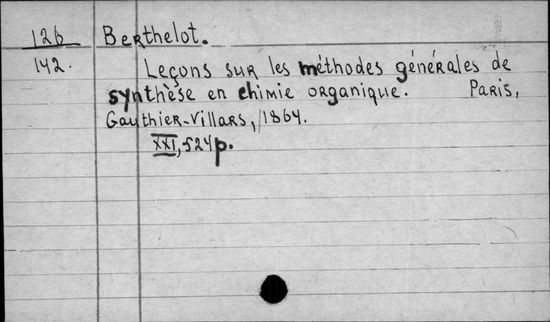 126 Berthelot.
142. Leçons sur les méthodes générales de
synthèse en chimie organique. Paris,
Gauthier-Villars, 1864.
XXI, 524 p.